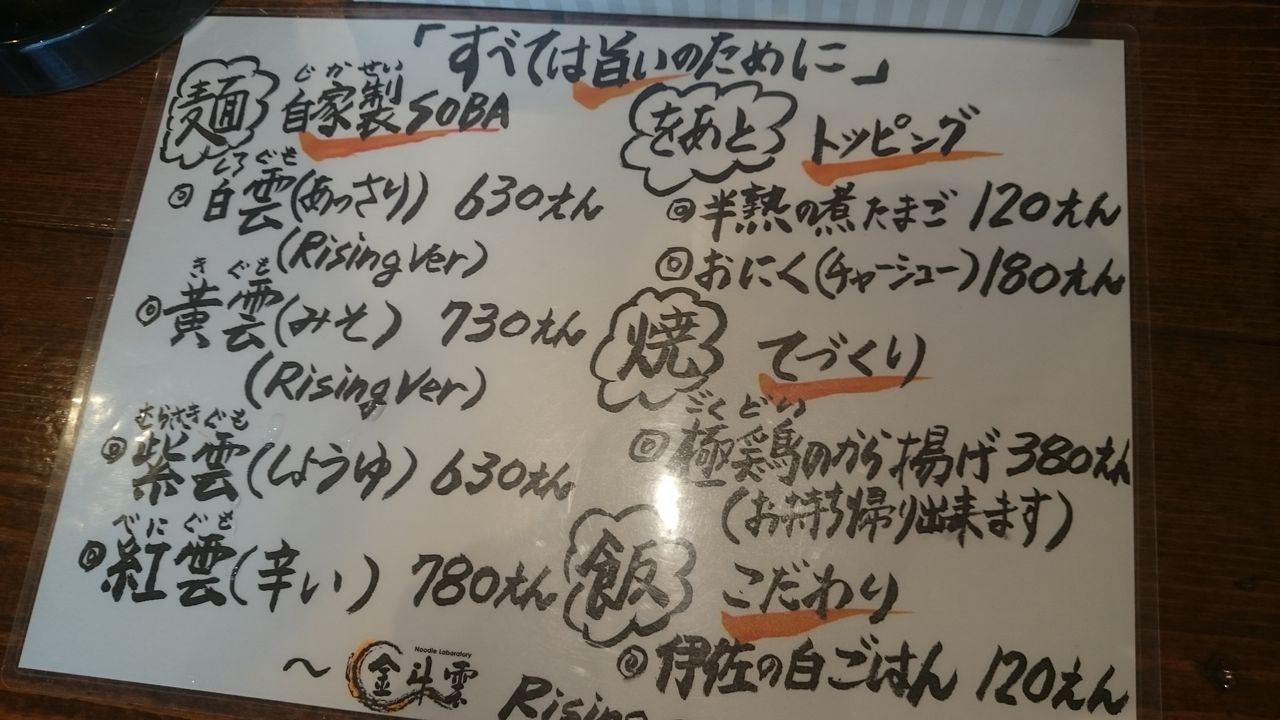 「すべては旨いのために」
麺
じかせい
自家製SOBA
しろぐも
◎白雲(あっさり) 630えん
(Rising Ver)
きぐも
◎黄雲(みそ) 730えん
(Rising Ver)
むらさきぐも
◎紫雲(しょうゆ) 630えん
べにぐも
◎紅雲(辛い) 780えん
をあと
トッピング
◎半熟の煮たまご 120えん
◎おにく(チャーシュー) 180えん
焼
てづくり
ごくどい
◎極鶏のから揚げ 380えん
(お持ち帰り出来ます)
飯
こだわり
◎伊佐の白ごはん 120えん
Noodle Laboratory
〜 金斗雲
Rising